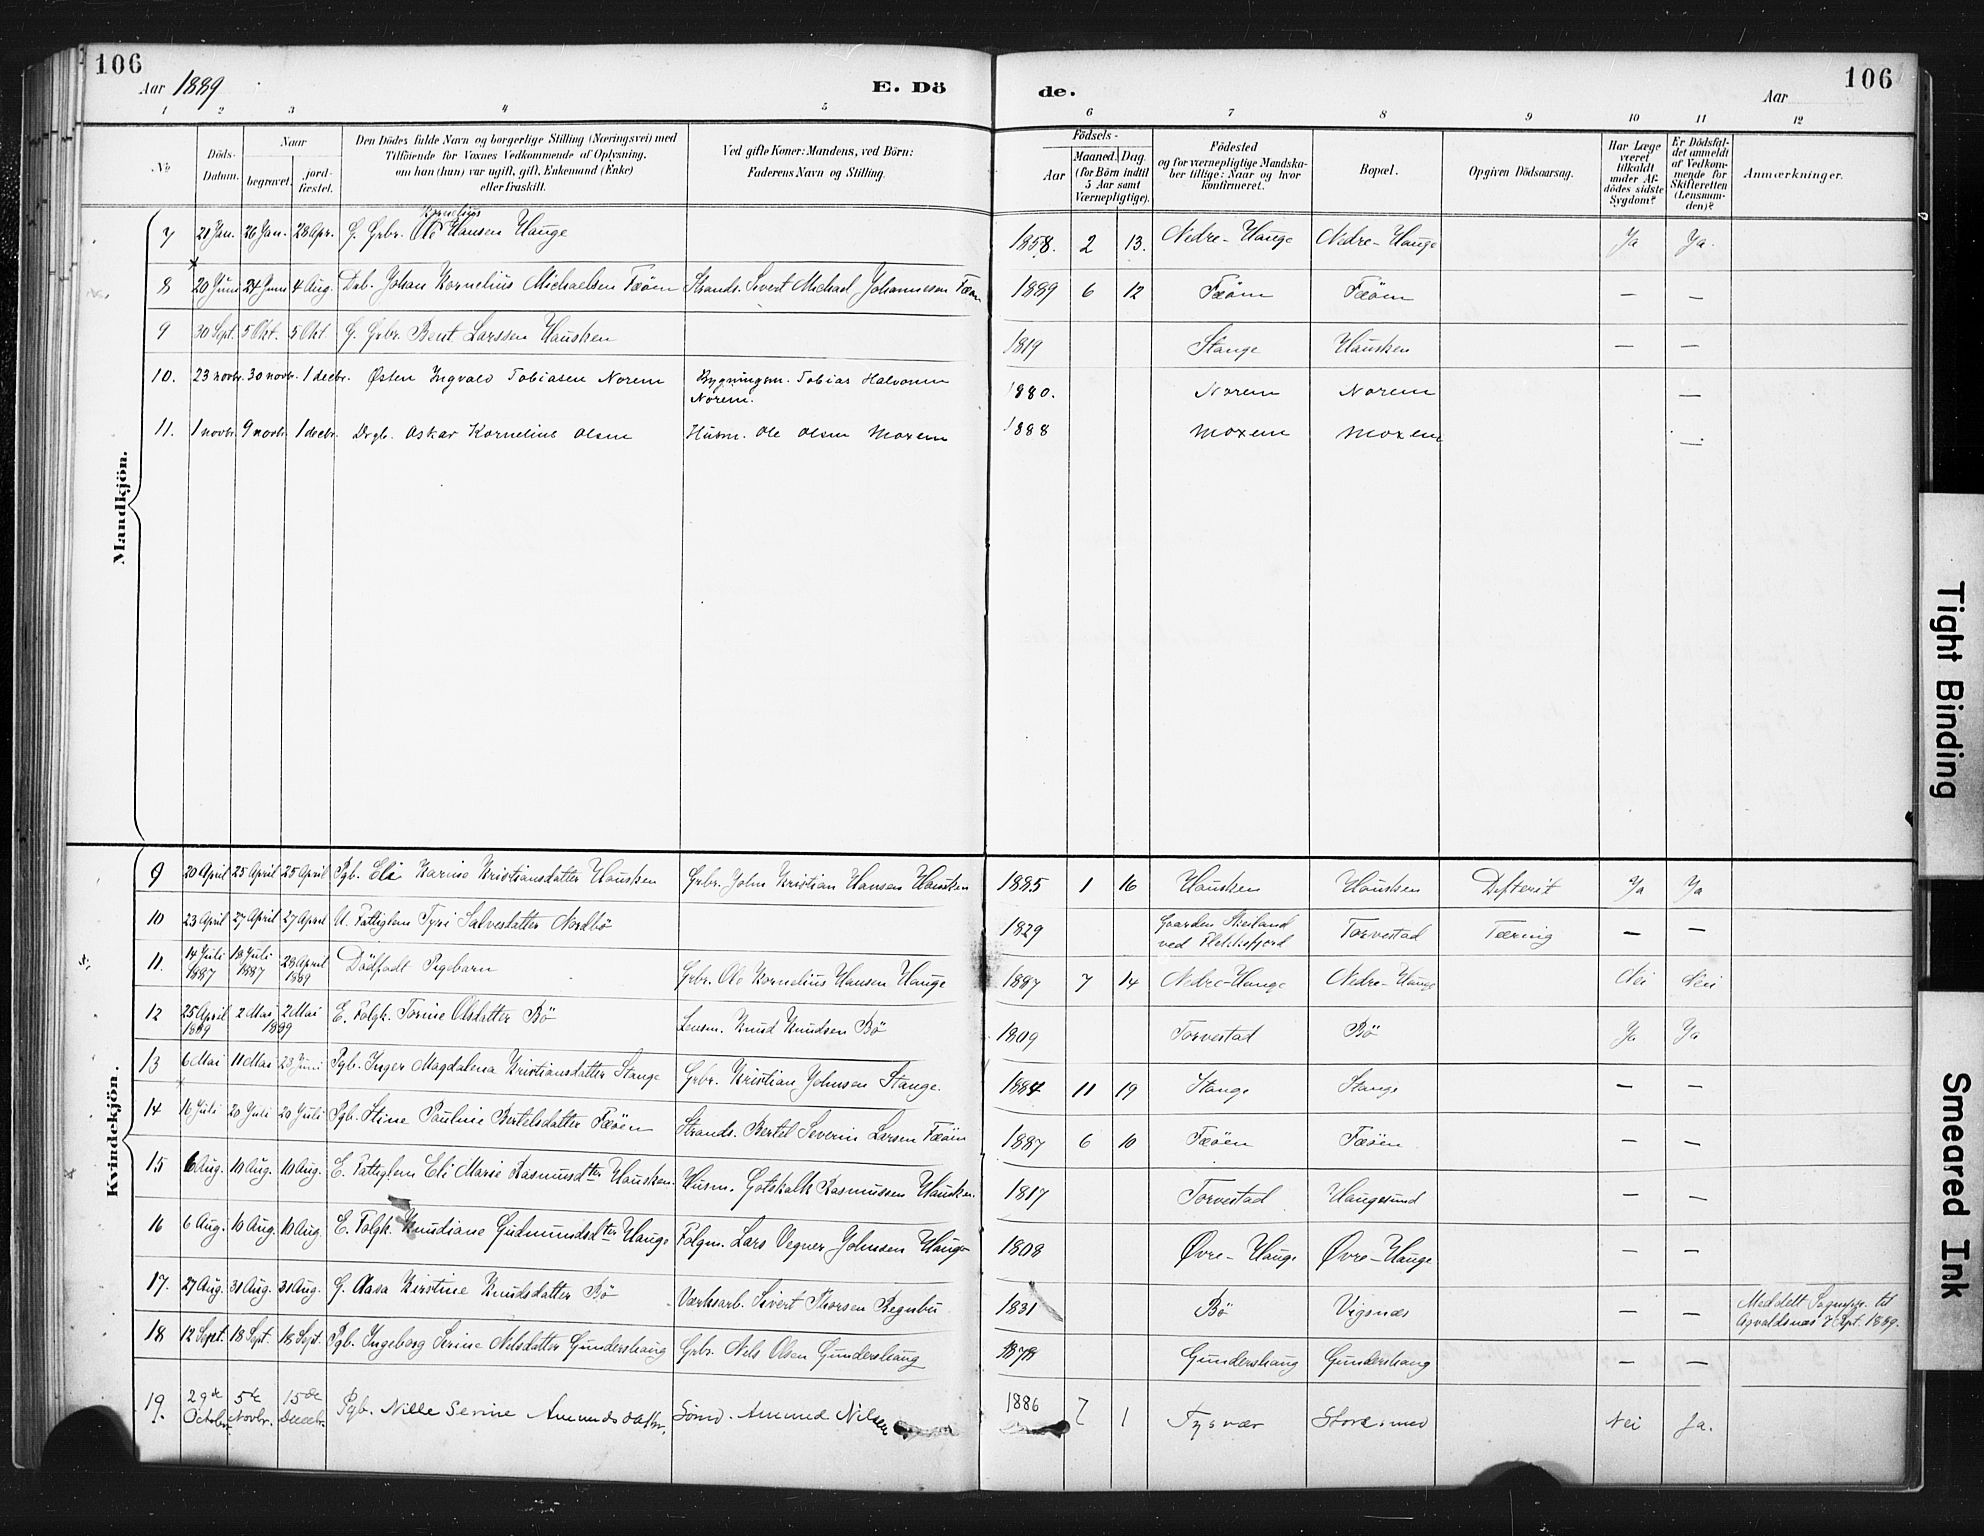 106
Aar 1889
E. Dö
de.
Aar
106
1 2 3 4 5 6 7 8 9 10 11 12
No
Döds-Datum.
Naar
begravet.
jord-fæstet.
Den Dödes fulde Navn og borgerlige Stilling (Næringsvei) med
Tilföiende for Voxnes Vedkommende af Oplysning,
om han (hun) var ugift, gift, Enkemand (Enke)
eller fraskilt.
Ved gifte Koner: Mandens, ved Börn:
Faderens Navn og Stilling.
Födsels-
Aar
Maaned. Dag.
(for Börn indtil
5 Aar samt
Værnepligtige).
Födested
og for værnepligtige Mandska-
ber tillige: Naar og hvor
konfirmeret.
Bopæl.
Opgiven Dödsaarsag.
Har Læge
været
tilkaldt
under Af-
dödes sidste
Sygdom?
Er Dödsfal-
det anmeldt
af Vedkom-
mende for
Skifteretten
(Lensman-
den)?
Anmærkninger.
Mandkjön.
Kornelius
7 26 Jan. 28 Apr. G. Grbr. Ole Hansen Hauge 1858. 2 13. Nedre-Hauge Nedre-Hauge Ja Ja.
8 20 Juni 24 Juni 4 Aug. Dab. Johan Kornelius Michaelsen Fæöen Strands. Sivert Michael Johannesen Fæöen 1889 6 12 Fæöen Fæöen — —
9 30 Sept. 5 Okt. 5 Okt. G. Grbr. Bent Larssen Hausken 1819 Stange Hausken — —
10. 23 novbr. 30 novbr. 1 decbr. Østen Ingvald Tobiasen Norem Bygningsm. Tobias Halvorsen
Norem. 1880. Norem Norem —
11. 1 novbr. 9 novbr. 1 decbr. Drgb. Oskar Kornelius Olsen Husm. Ole Olsen Moxem 1888 Moxem Moxem —
Kvindekjön.
9 20 April 25 April 25 April Pgb. Eli Karine Kristiansdatter Hausken Grbr. John Kristian Hansen Hausken 1885 1 16 Hausken Hausken Difterit Ja Ja
10 23 April 27 April 27 April U. Fattiglem Tyri Salvesdatter Nordbö 1829 Gaarden Skeiland
ved Flekkefjord Torvestad Tæring — —
11. 14 Juli 1887 18 Juli 1887 28 April 1889 Dödfødt Pigebarn Grbr. Ole Kornelius Hansen Hauge 1887 7 14 Nedre-Hauge Nedre-Hauge Nei Nei
12 25 April 1889 2 Mai 2 Mai 1889 E. Folgk. Torine Olsdatter Bö Lensm. Knud Knudsen Bö 1809 Torvestad Bö Ja Ja
13 6 Mai 11 Mai 23 Juni Pgb. Inger Magdalena Kristiansdatter Stange Grbr. Kristian Johnsen Stange. 1884 11 19 Stange Stange — —
14 16 Juli 20 Juli 20 Juli Pgb. Stine Pauline Bertelsdatter Fæöen Strands. Bertel Severin Larsen Fæöen 1887 6 10 Fæöen Fæöen — —
15 6 Aug. 10 Aug. 10 Aug. E. Fattiglem Eli Marie Rasmusdter Hausken. Husm. Gotskalk Rasmussen Hausken. 1817 Torvestad Haugesund — —
16 6 Aug. 10 Aug. 10 Aug. E. Folgk. Knudiane Gudmundsdter Hauge Folgm. Lars Vegner Johnsen Hauge 1808 Øvre-Hauge Øvre-Hauge — —
17. 27 Aug. 31 Aug. 31 Aug. G. Aasa Kirstine Knudsdatter Bö Værksarb. Sivert Thorsen Regnbu 1831 Bö Vigsnæs — — Meddelt Sognepr. til
Agvaldsnæs 7 Sept. 1889.
18 12 Sept. 18 Sept. 18 Sept. Pgb. Ingeborg Serine Nelsdatter Gundershaug Grbr. Nels Olsen Gundershaug 1878 Gundershaug Gundershaug — —
19. 29de Octobr. 5te Novbr. 15de Decbr. Pgb. Nille Serine Amundsdatter, Sömd. Ammund Nilsen 1886 7 1 Tysvær Storesmed Nei Ja.
Tight Binding
Smeared Ink